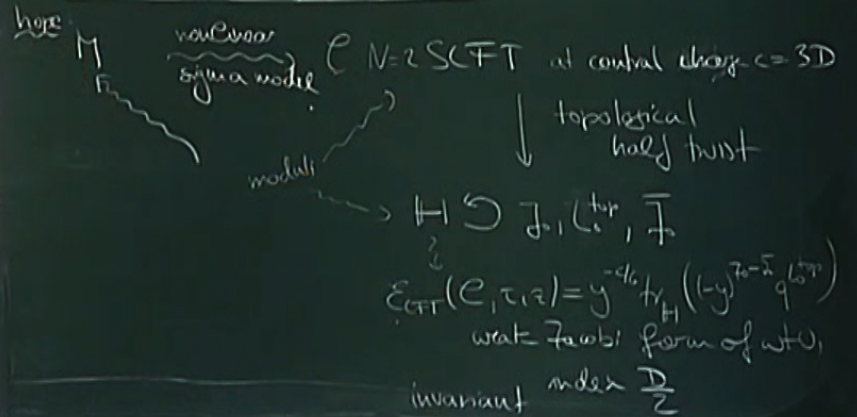 hope
M nonlinear sigma model C N=2 SCFT at central charge c=3D
topological
half twist
moduli
H ↺ J₀, L₀^top, J̄₀
ε_CFT(C,τ,z) = y^{-c/6} tr_H((-y)^{J₀-J̄₀} q^{L₀^top})
weak Jacobi form of wt 0,
invariant index D/2